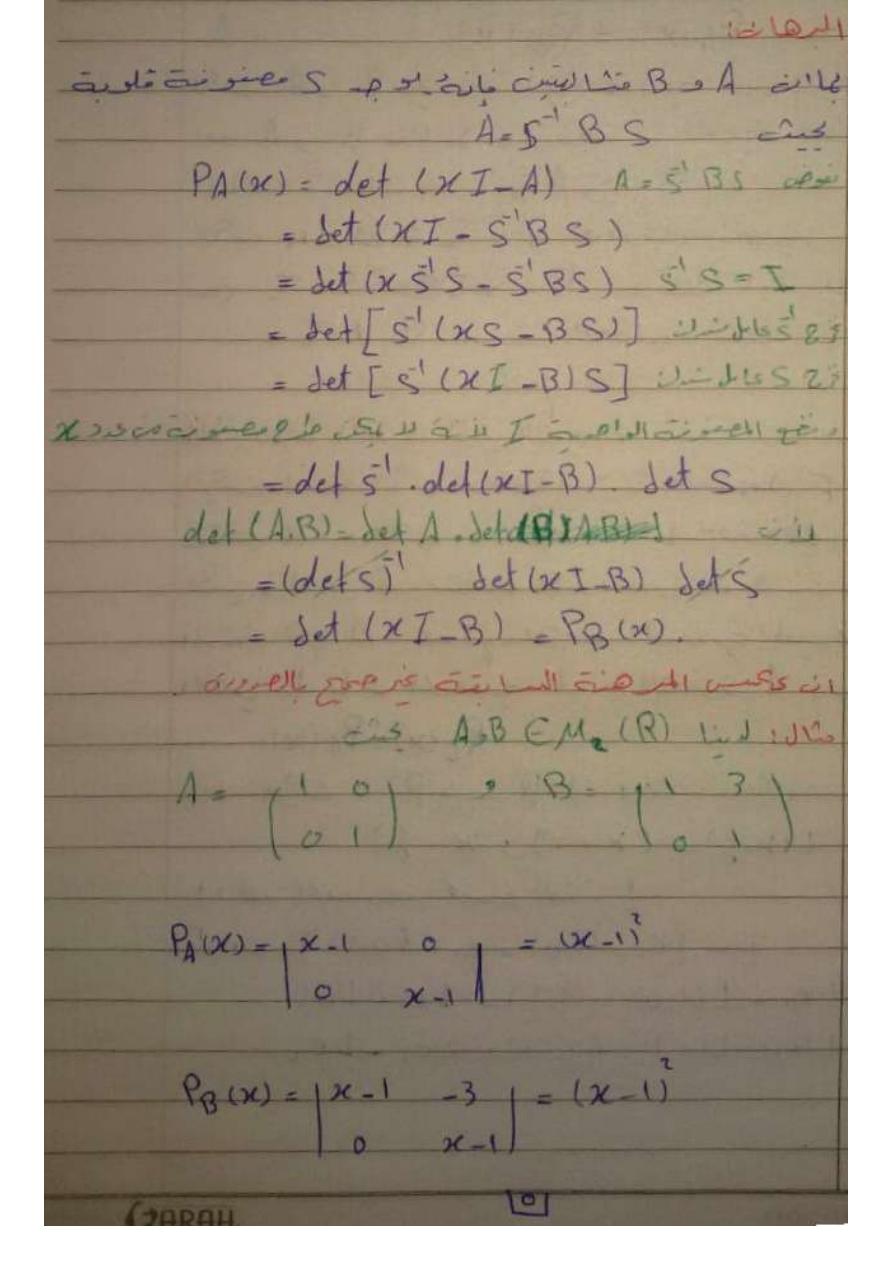 البرهان:
بما ان A و B متشابهتين فإنه يوجد S مصفوفة قلوبة
بحيث A = S⁻¹ B S
P_A(x) = det (xI - A) نعوض A = S⁻¹BS
= det (xI - S⁻¹BS)
= det (x S⁻¹S - S⁻¹BS) S⁻¹S = I
= det [S⁻¹ (xS - BS)] نخرج S⁻¹ عامل مشترك
= det [S⁻¹ (xI - B) S] نخرج S عامل مشترك
و نضع المصفوفة الواحدية I لأنه لا يمكن طرح مصفوفة من عدد x
= det S⁻¹ . det (xI - B) . det S
لأن det (A.B) = det A . det (B)
= (det S)⁻¹ det (xI - B) det S
= det (xI - B) = P_B(x).
ان عكس المبرهنة السابقة غير صحيح بالضرورة.
مثال: لدينا A,B ∈ M₂(R) بحيث
A = (1 0 و B = (1 3
0 1) 0 1)
P_A(x) = | x-1 0 | = (x-1)²
| 0 x-1 |
P_B(x) = | x-1 -3 | = (x-1)²
| 0 x-1 |
٥
SARAH